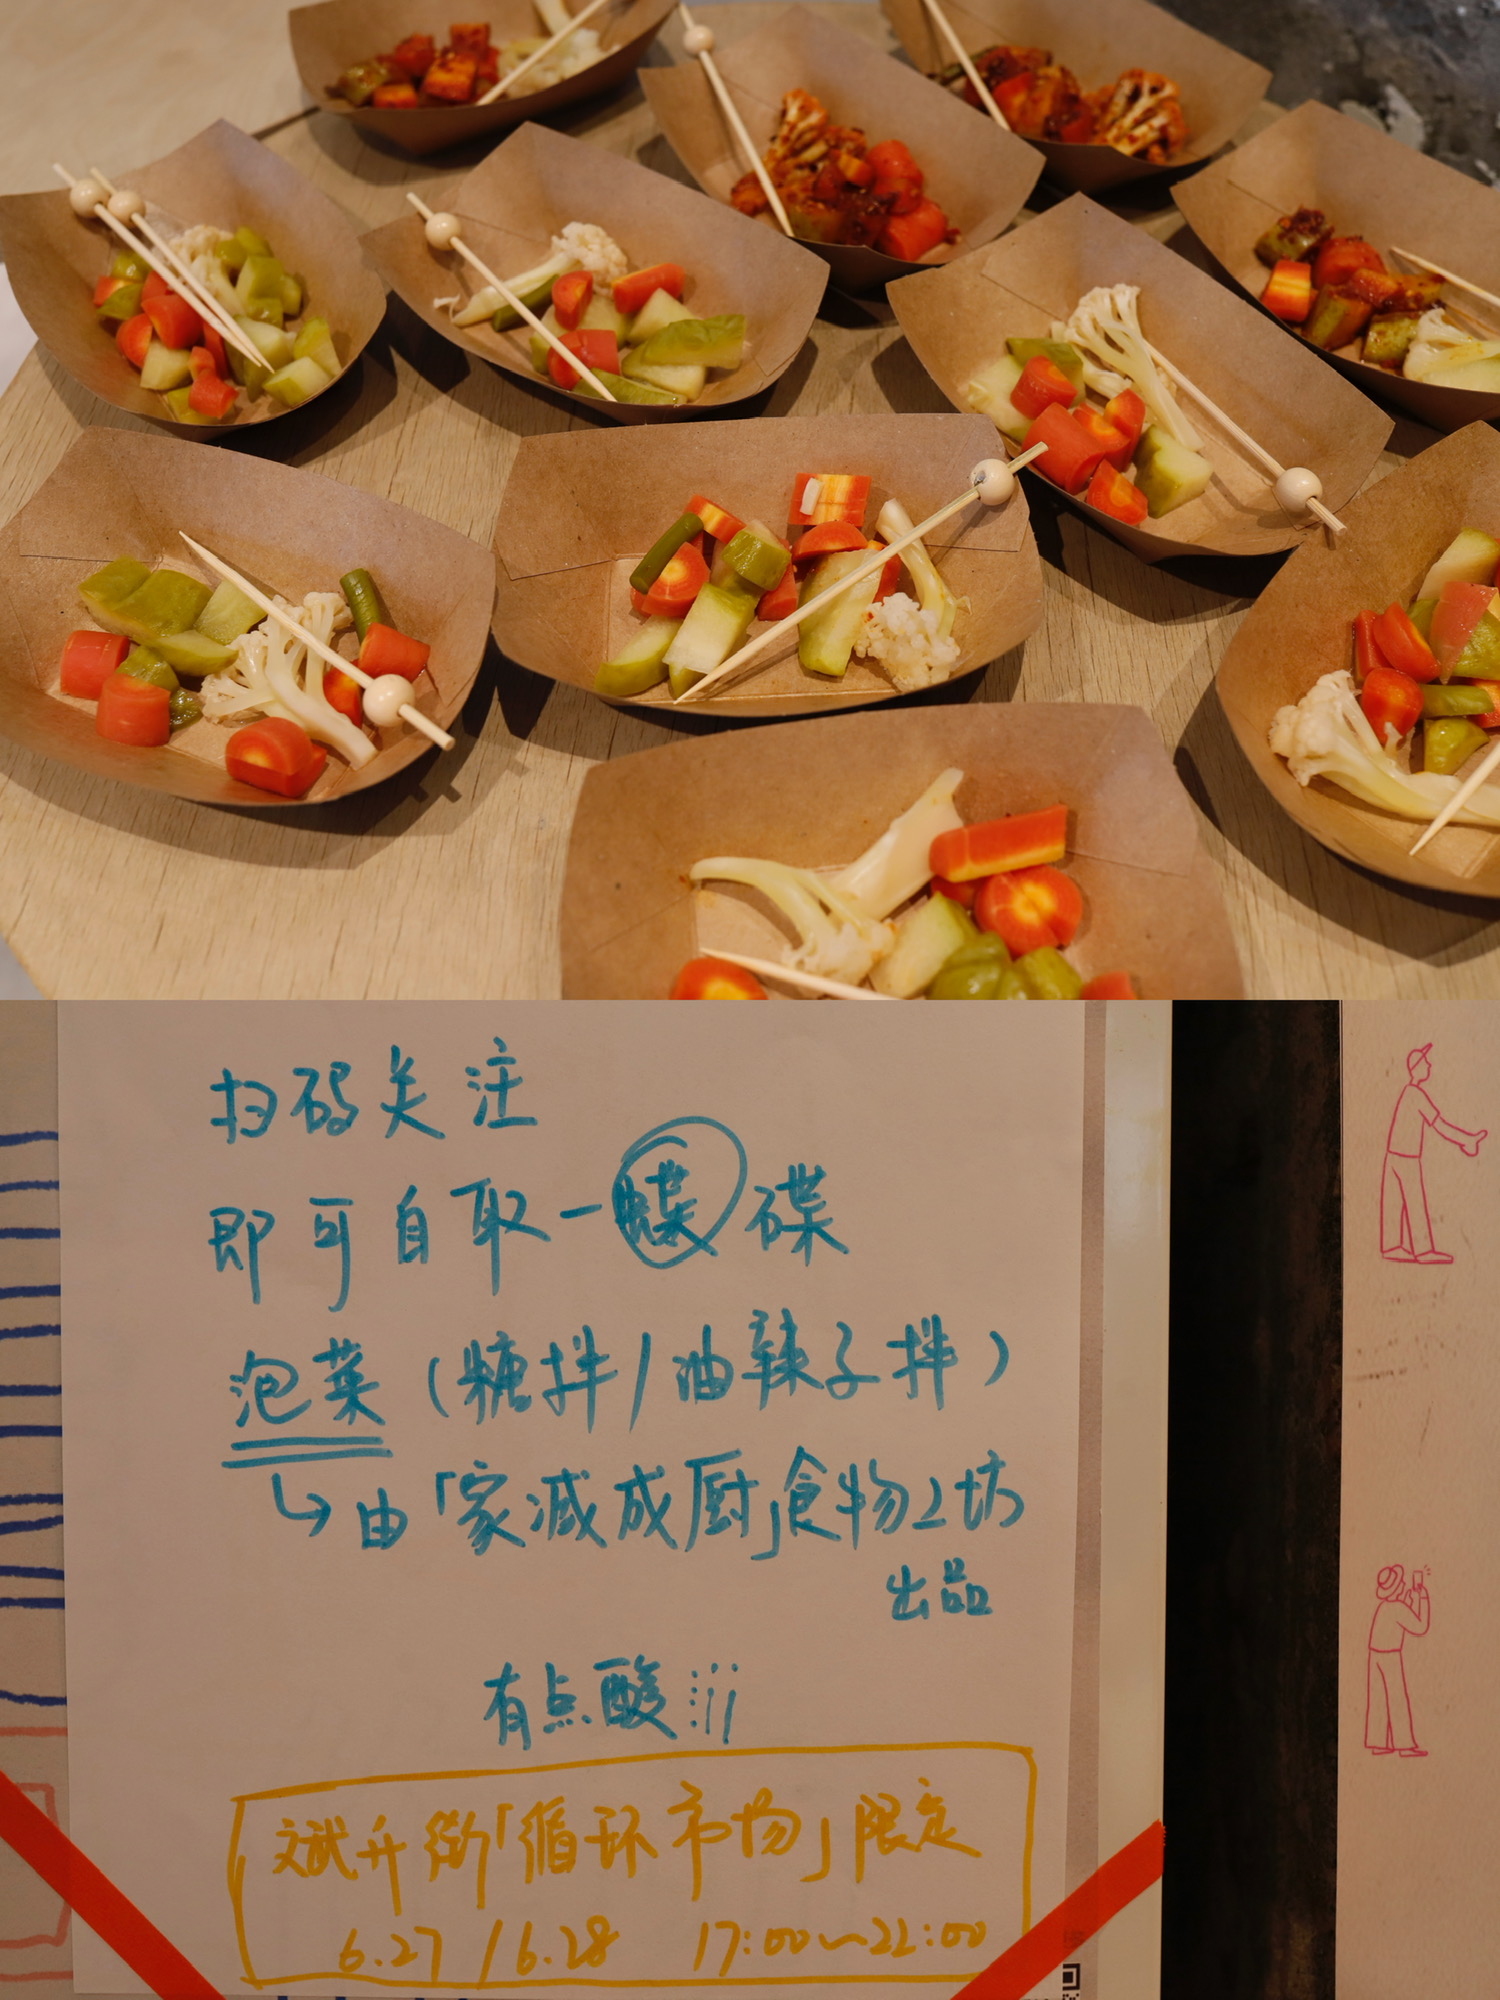 扫码关注
即可自取一碟
泡菜（糖拌/油辣子拌）
由「家减成厨」食物工坊
出品
有点酸
斌升街「循环市场」限定
6.27 / 6.28 17:00~22:00